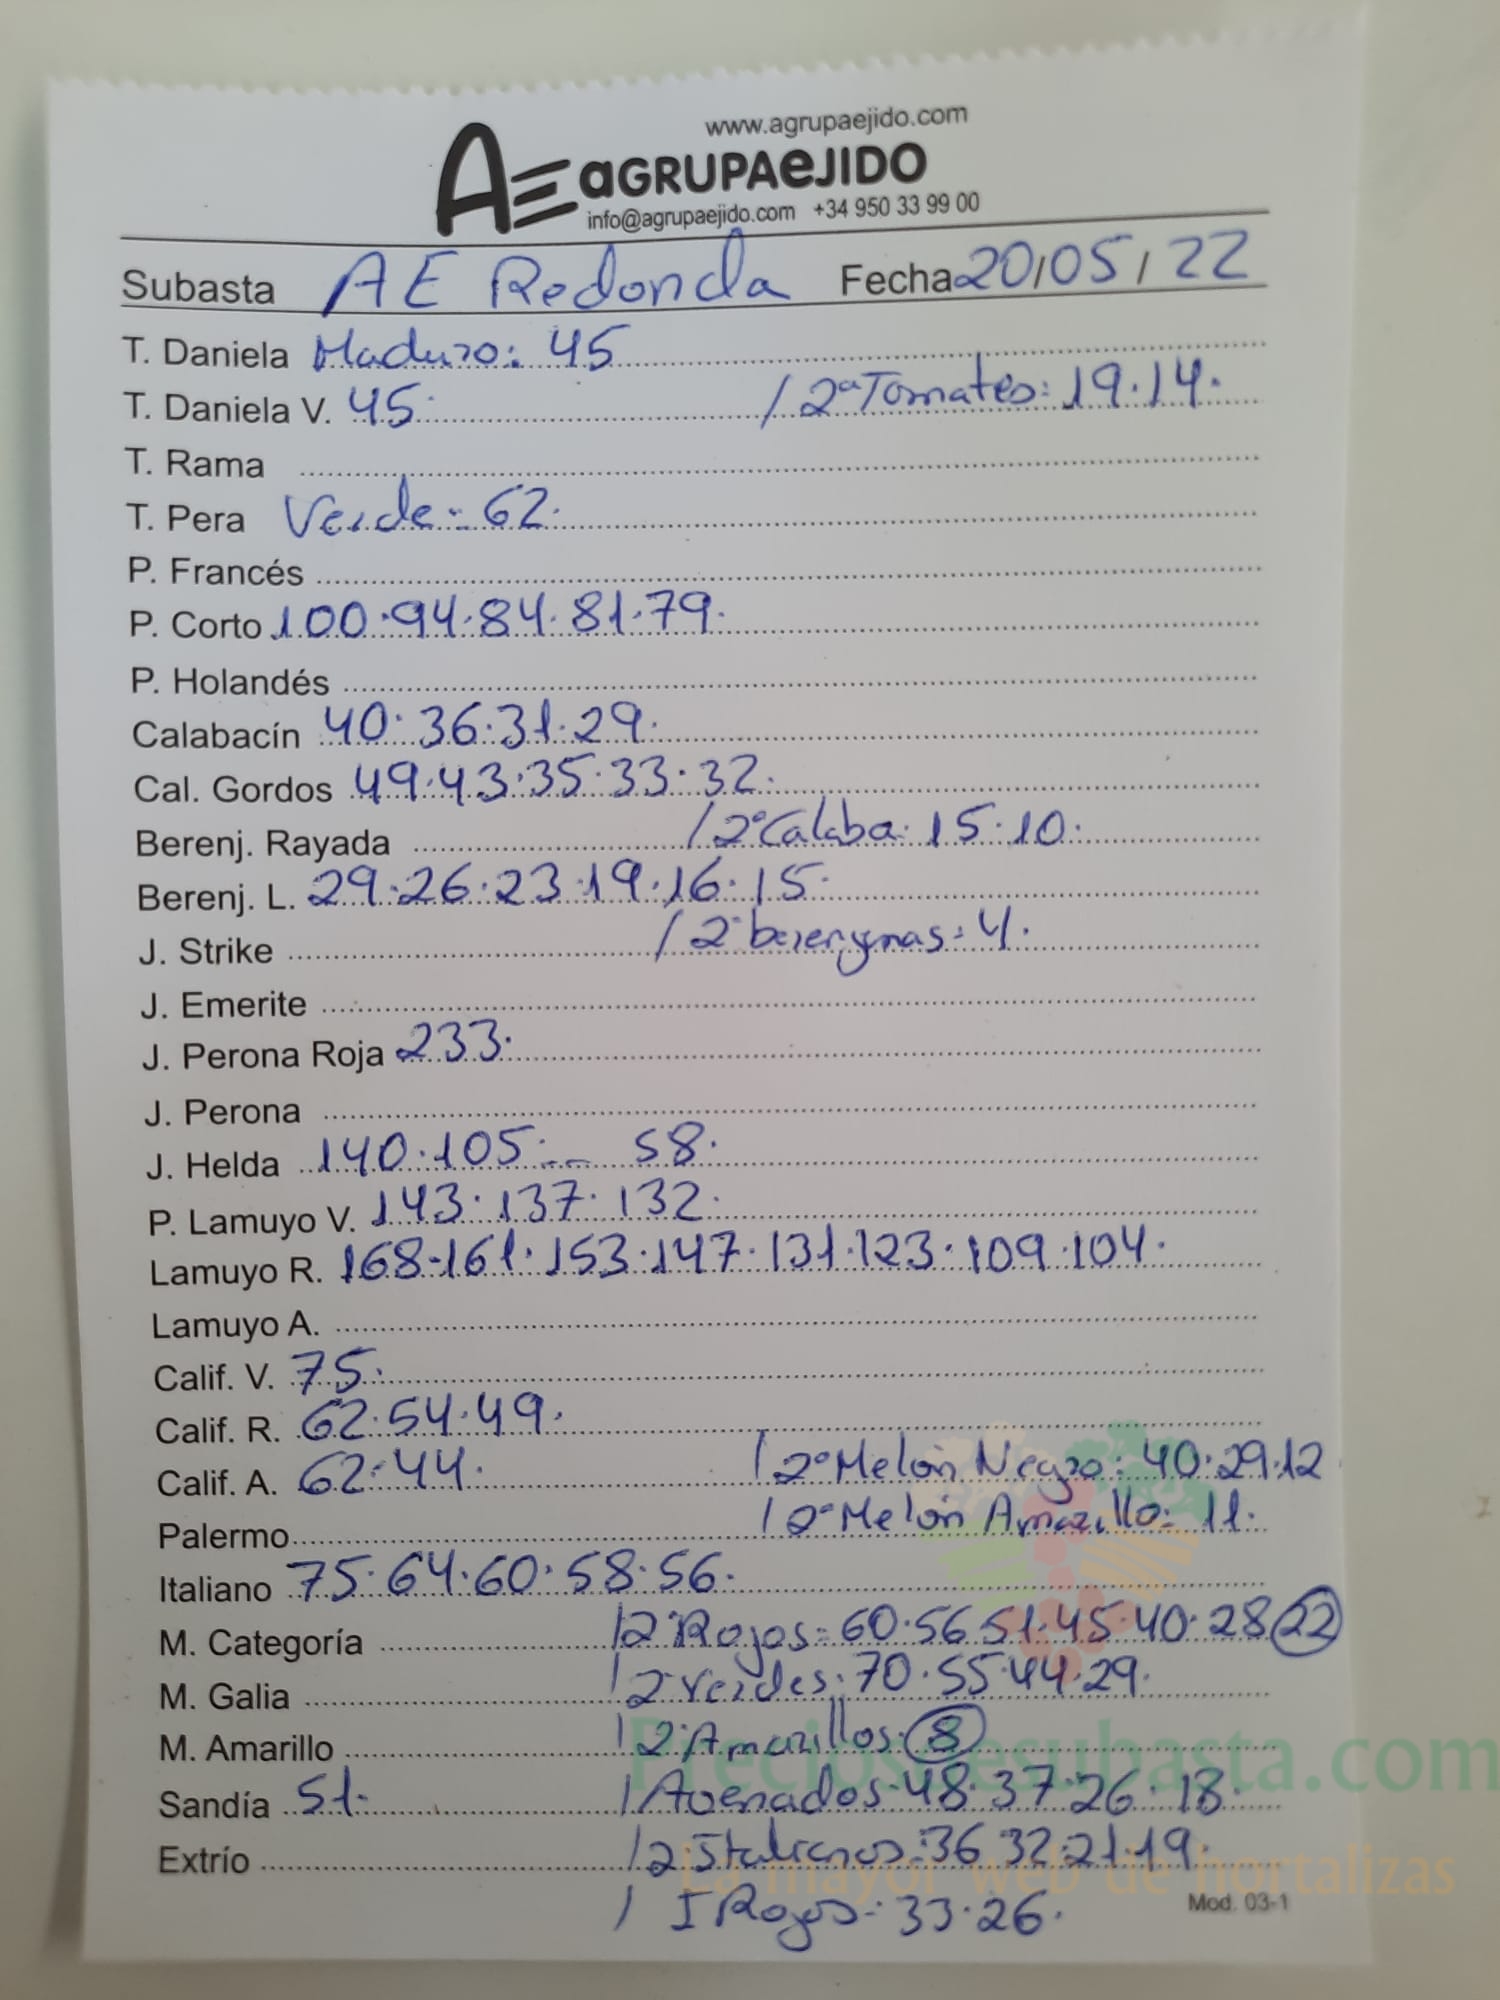 www.agrupaejido.com
AE aGRUPAeJIDO
info@agrupaejido.com +34 950 33 99 00
Subasta AE Redonda Fecha 20/05/22
T. Daniela Maduro: 45
T. Daniela V. 45. / 2ª Tomates: 19.14.
T. Rama
T. Pera Verde: 62.
P. Francés
P. Corto 100.94.84.81.79.
P. Holandés
Calabacín 40.36.31.29.
Cal. Gordos 49.43.35.33.32.
Berenj. Rayada / 2ª Calaba: 15.10.
Berenj. L. 29.26.23.19.16.15.
J. Strike / 2ª berenjenas: 4.
J. Emerite
J. Perona Roja 233.
J. Perona
J. Helda 140.105.__ 58.
P. Lamuyo V. 143.137.132.
Lamuyo R. 168-161.153.147.131.123.109.104.
Lamuyo A.
Calif. V. 75.
Calif. R. 62.54.49.
Calif. A. 62.44. / 2º Melón Negro: 40.29.12
Palermo / 2º Melón Amarillo: 11.
Italiano 75.64.60.58.56.
M. Categoría / 2º Rojos: 60.56 51.45.40.28 22
M. Galia / 2º Verdes: 70.55.44.29.
M. Amarillo / 2º Amarillos: 8
Sandía 51. / Avenados: 48.37.26.18.
Extrío / 2º Italianos: 36 32.21.19.
/ I Rojos: 33.26.
Mod. 03-1
Preciosdesubasta.com
La mayor web de hortalizas